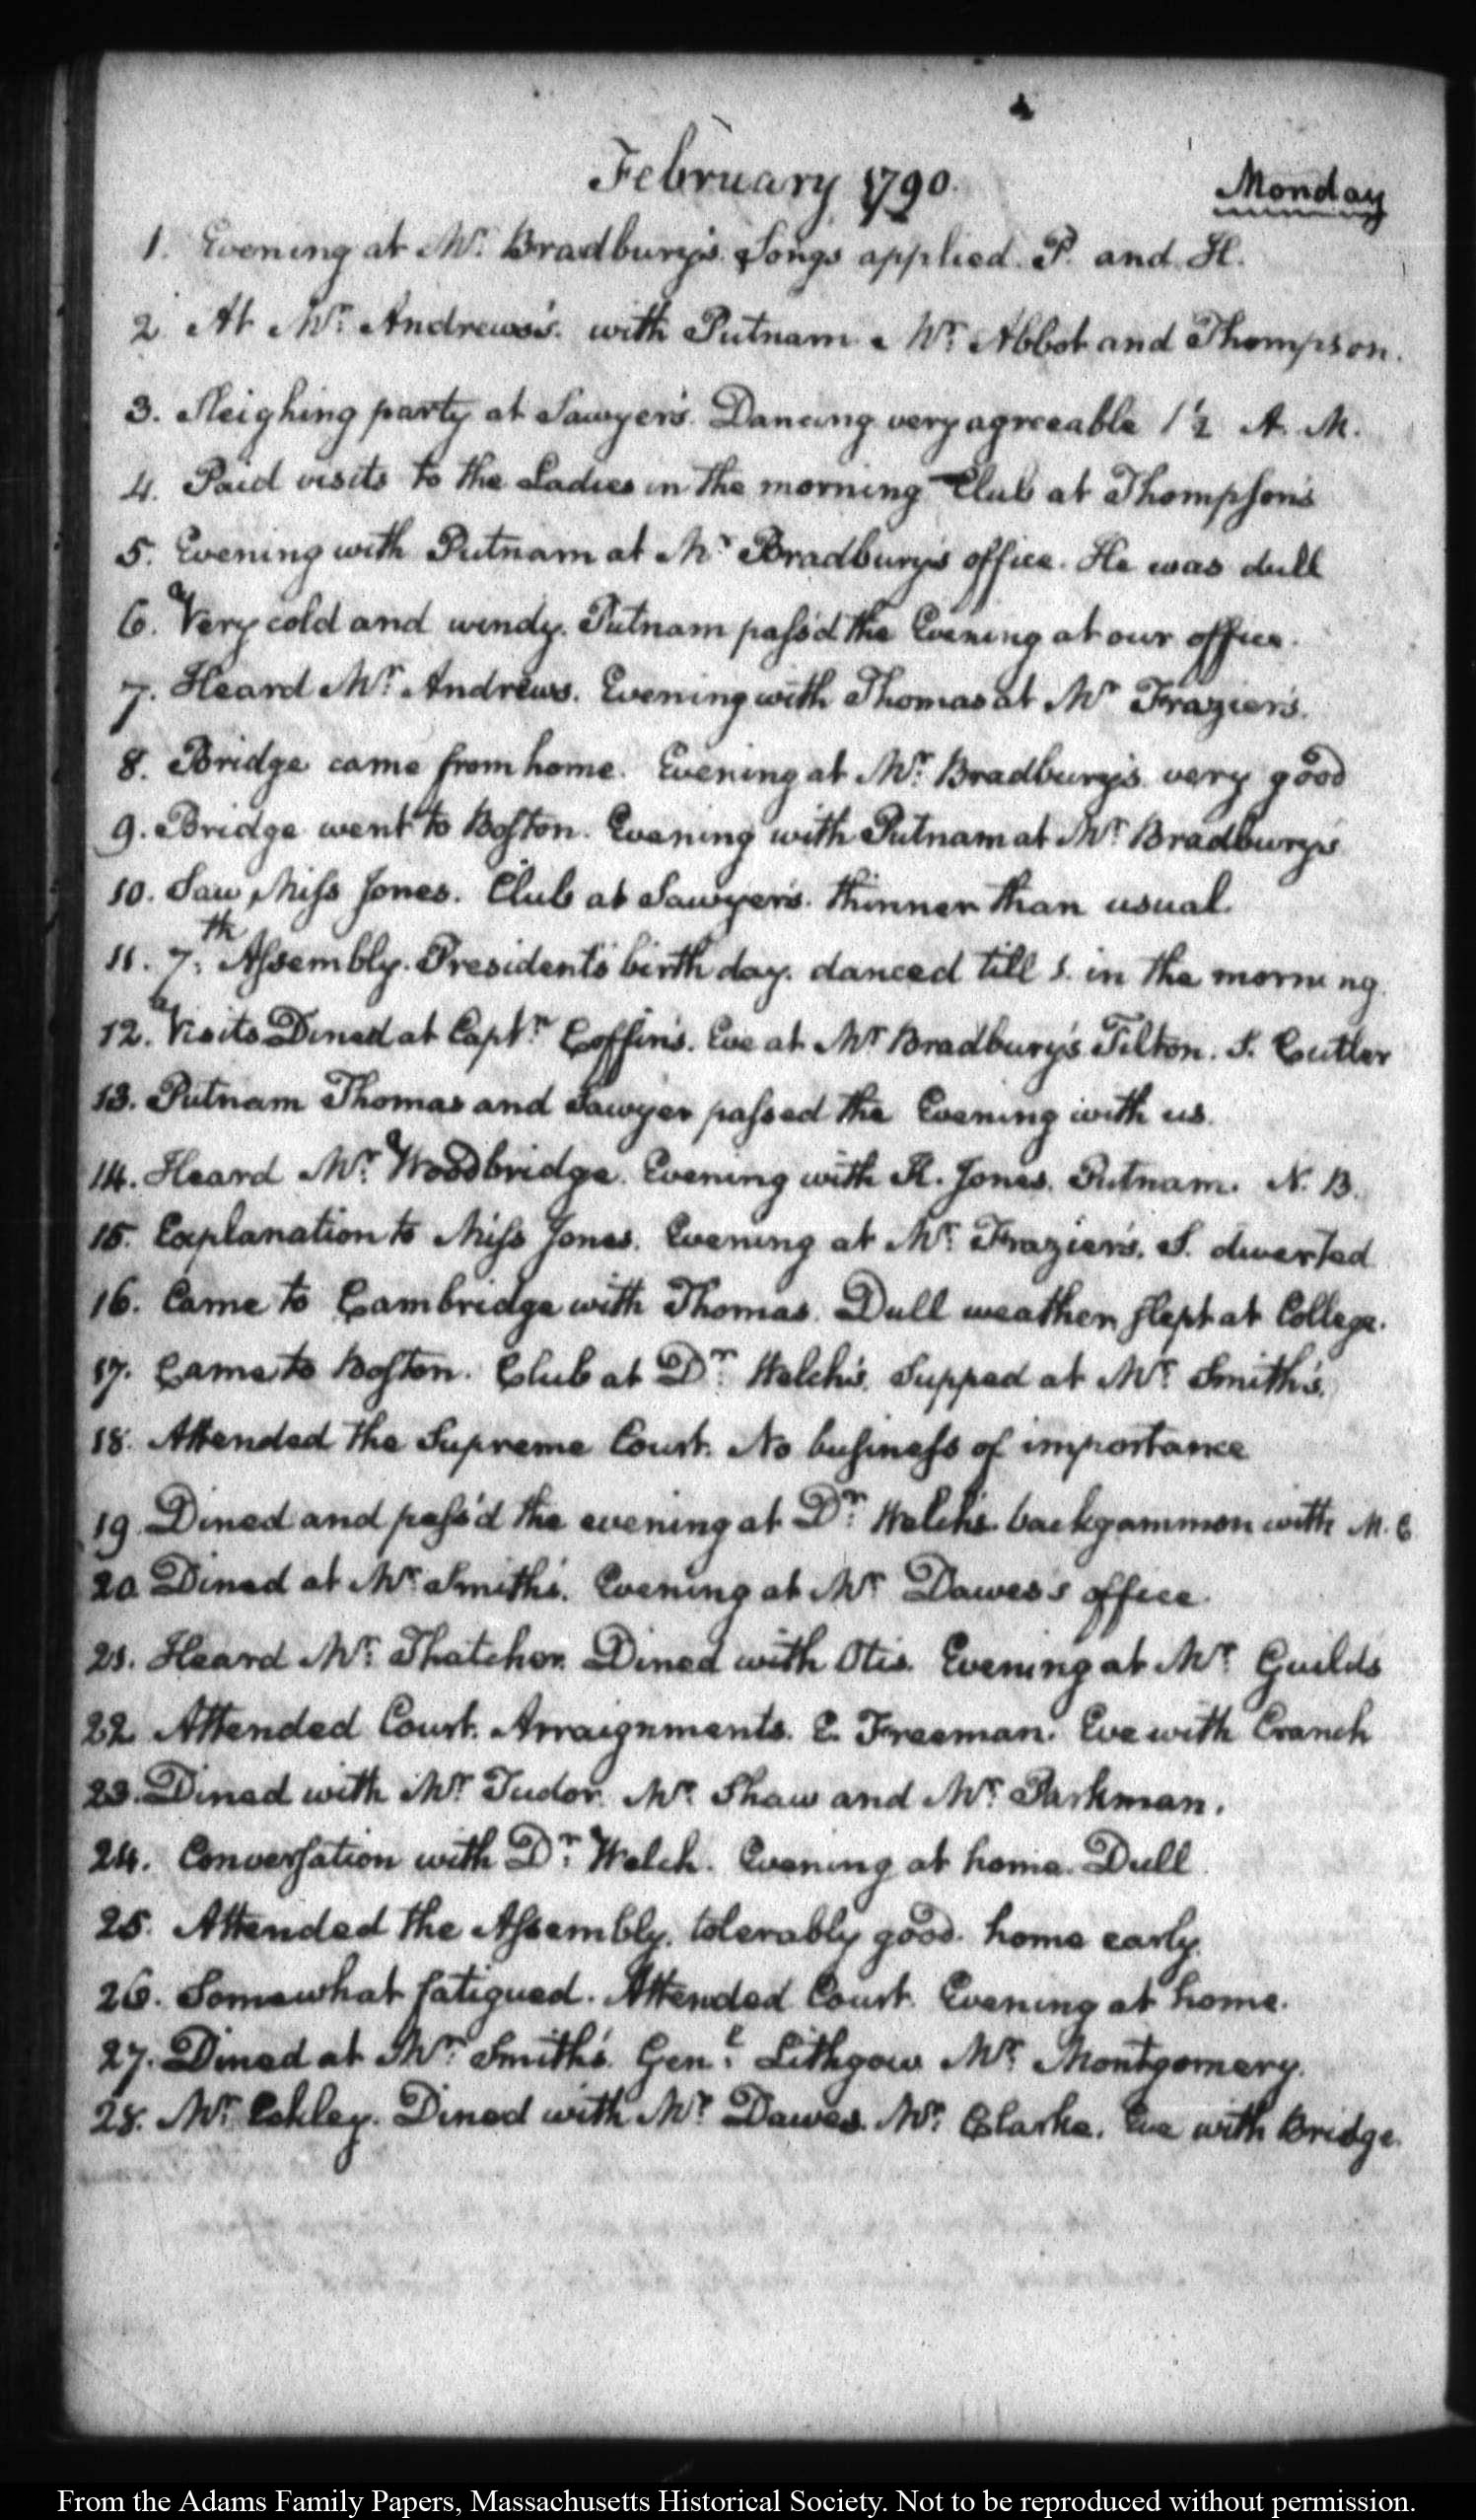 February 1790.
Monday
1. Evening at Mr. Bradbury's. Songs applied. P. and H.
2 At Mr. Andrews's. with Putnam. Mr. Abbot and Thompson.
3. Sleighing party at Sawyer's. Dancing very agreeable 1 1/2 A. M.
4. Paid visits to the Ladies in the morning Club at Thompson's
5. Evening with Putnam at Mr Bradbury's office. He was dull
6. Very cold and windy. Putnam pass'd the Evening at our office.
7. Heard Mr. Andrews. Evening with Thomas at Mr Frazier's.
8. Bridge came from home. Evening at Mr. Bradbury's very good
9. Bridge went to Boston. Evening with Putnam at Mr. Bradbury's
10. Saw Miss Jones. Club at Sawyer's. thinner than usual.
11. 7.th Assembly. President's birth day. danced till 1. in the morning.
12. Visits Dined at Captn. Coffin's. Eve at Mr Bradbury's Tilton. S. Cutler
13. Putnam Thomas and Sawyer passed the Evening with us.
14. Heard Mr. Woodbridge. Evening with H. Jones. Putnam. N. B.
15. Explanation to Miss Jones. Evening at Mr. Frazier's. S. diverted
16. Came to Cambridge with Thomas. Dull weather, slept at College.
17. Came to Boston. Club at Dr. Welch's. Supped at Mr. Smith's.
18. Attended the Supreme Court. No business of importance
19. Dined and pass'd the evening at Dr. Welch's backgammon with M. C
20. Dined at Mr. Smith's. Evening at Mr Dawes's office.
21. Heard Mr. Thatcher. Dined with Otis. Evening at Mr. Guilds
22 Attended Court. Arraignments. E. Freeman. Eve with Cranch
23. Dined with Mr. Tudor. Mr. Shaw and Mr. Parkman.
24. Conversation with Dr. Welch. Evening at home. Dull
25. Attended the Assembly. tolerably good. home early.
26. Somewhat fatigued. Attended Court. Evening at home.
27. Dined at Mr. Smith's. Genl. Lithgow Mr. Montgomery.
28. Mr. Eckley. Dined with Mr. Dawes. Mr. Clarke. Eve with Bridge.
From the Adams Family Papers, Massachusetts Historical Society. Not to be reproduced without permission.